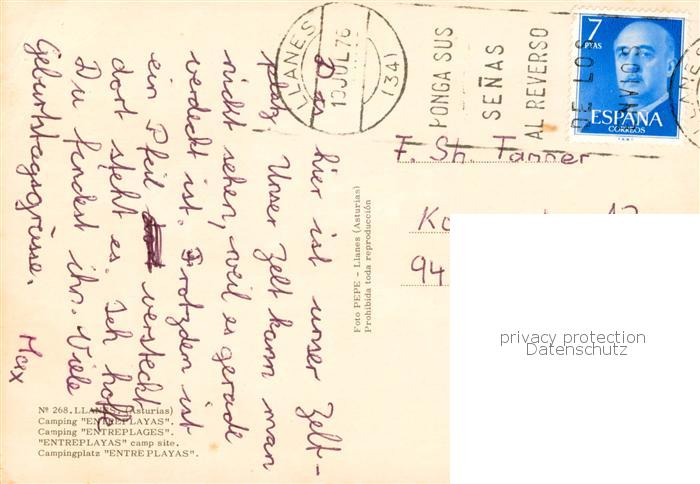 Das hier ist unser Zelt-
platz. Unser Zelt kann man
nicht sehen, weil es gerade
verdeckt ist. Trotzdem ist
ein Pfeil versteckt
dort steht es. Ich hoffe
Du findest ihn. Viele
Geburtstagsgrüsse.
Max
LLANES
19 JUL 76
(34)
PONGA SUS
SEÑAS
AL REVERSO
DE LOS
ENVIOS
7
PTAS
ESPAÑA
CORREOS
F. Sh. Tanner
94
Foto PEPE - Llanes (Asturias)
Prohibida toda reproducción
privacy protection
Datenschutz
Nº 268. LLANES. (Asturias)
Camping "ENTREPLAYAS".
Camping "ENTREPLAGES".
"ENTREPLAYAS" camp site.
Campingplatz "ENTREPLAYAS".